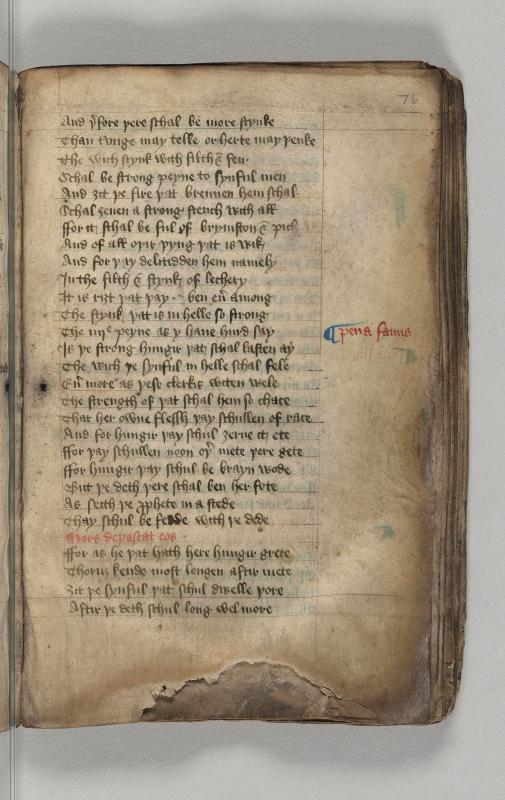 76
And þfore þere schal be more stynke
Than tunge may telle or herte may þenke
The wich stynk with filth & feu
Schal be strong peyne to synful men
And ȝit þe fire þat brennen hem schal
Schal ȝeuen a strong stench with all
ffor it schal be ful of brymston & pich
And of all oþir þyng þat is wik
And for þay delitidden hem namely
In the filth & stynk of lechery
It is riȝt þat þay ben eu among
The stynk þat is in helle so strong
The iiije peyne as y haue hurd say
Is þe strong hungir þat schal lasten ay
¶ pena famis
The wich þe synful in helle schal fele
Eu more as þese clerkis witen wele
The strength of þat schal hem so chace
That her owne flessh þay schullen of race
And for hungir þay schul ȝerne it ete
ffor þay schullen noon oþ mete þere gete
ffor hungir þay schul be brayn wode
But þe deth þere schal ben her fote
As seith þe pphete in a stede
Thay schul be fedde with þe dede
Mors depastat eos
ffor as he þat hath here hungir grete
Thoruȝ kende most longen aftir mete
ȝit þe synful þat schul dwelle þore
Aftir þe deth schul long wel more